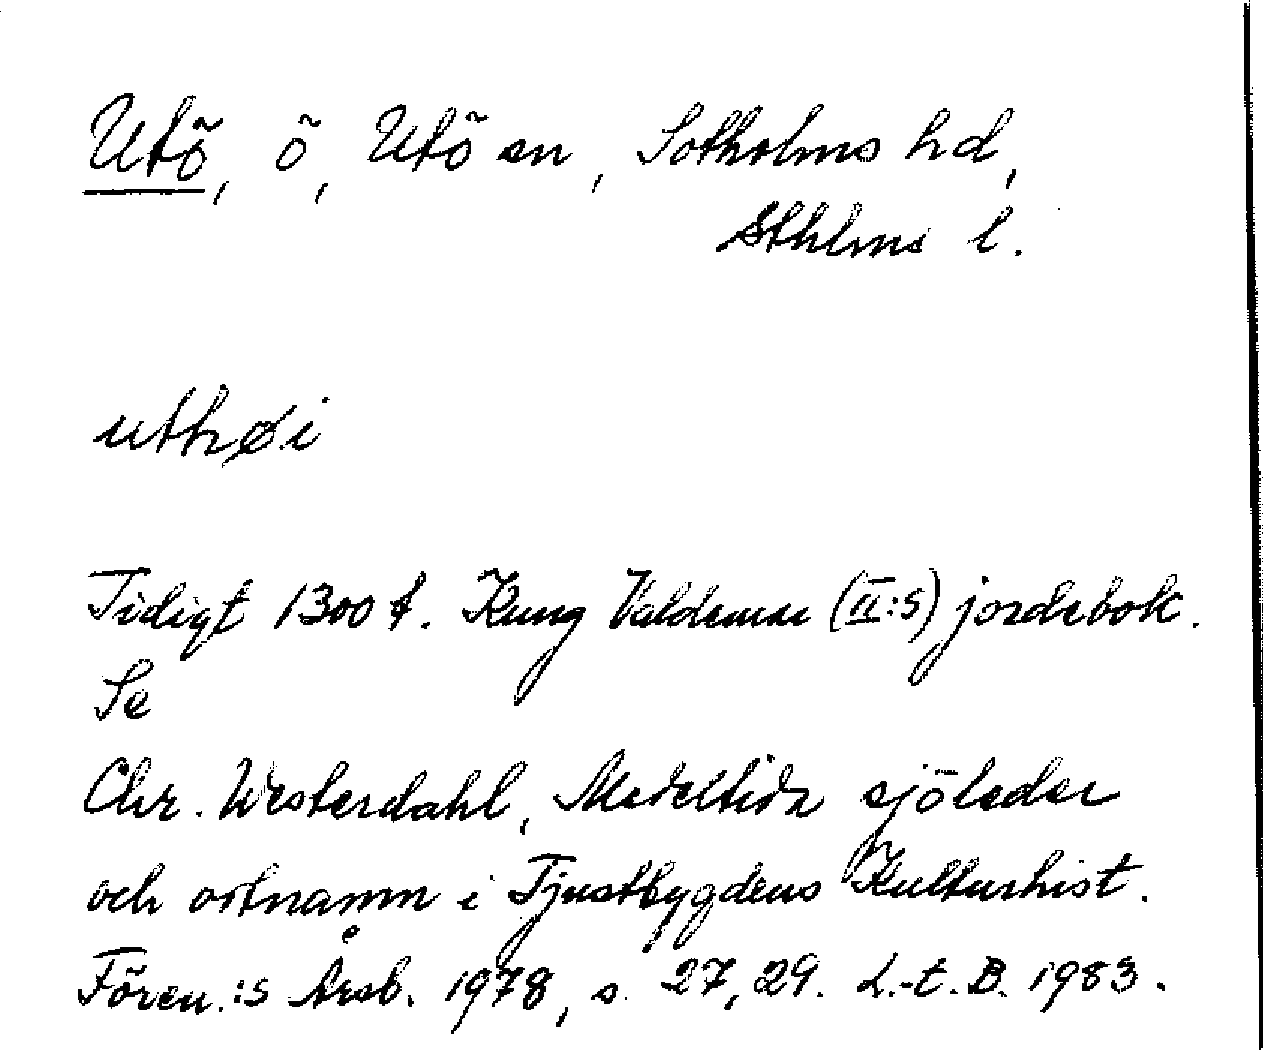 Utö, ö, Utö sn, Sotholms hd,
Sthlms l.
uthøi
Tidigt 1300 t. Kung Valdemar (II:s) jordebok.
Se
Chr. Westerdahl, Medeltida sjöleder
och ortnamn i Tjustbygdens Kulturhist.
Fören.:s Årsb. 1978, s. 27, 29. L.-t. B. 1983.